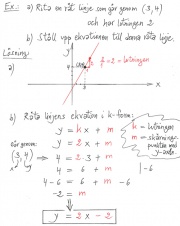 Ex: a) Rita en rät linje som går genom (3,4)
och har lutningen 2
b) Ställ upp ekvationen till denna räta linje.
Lösning:
a)
y
4
k = 2 = lutningen
3
x
b) Räta linjens ekvation i k-form:
går genom (3,4)
x y
y = kx + m
y = 2x + m
4 = 2·3 + m
4 = 6 + m
4 - 6 = 6 + m - 6
-2 = m
y = 2x - 2
b) k = lutningen
m = skärningspunkten med y-axeln
-6